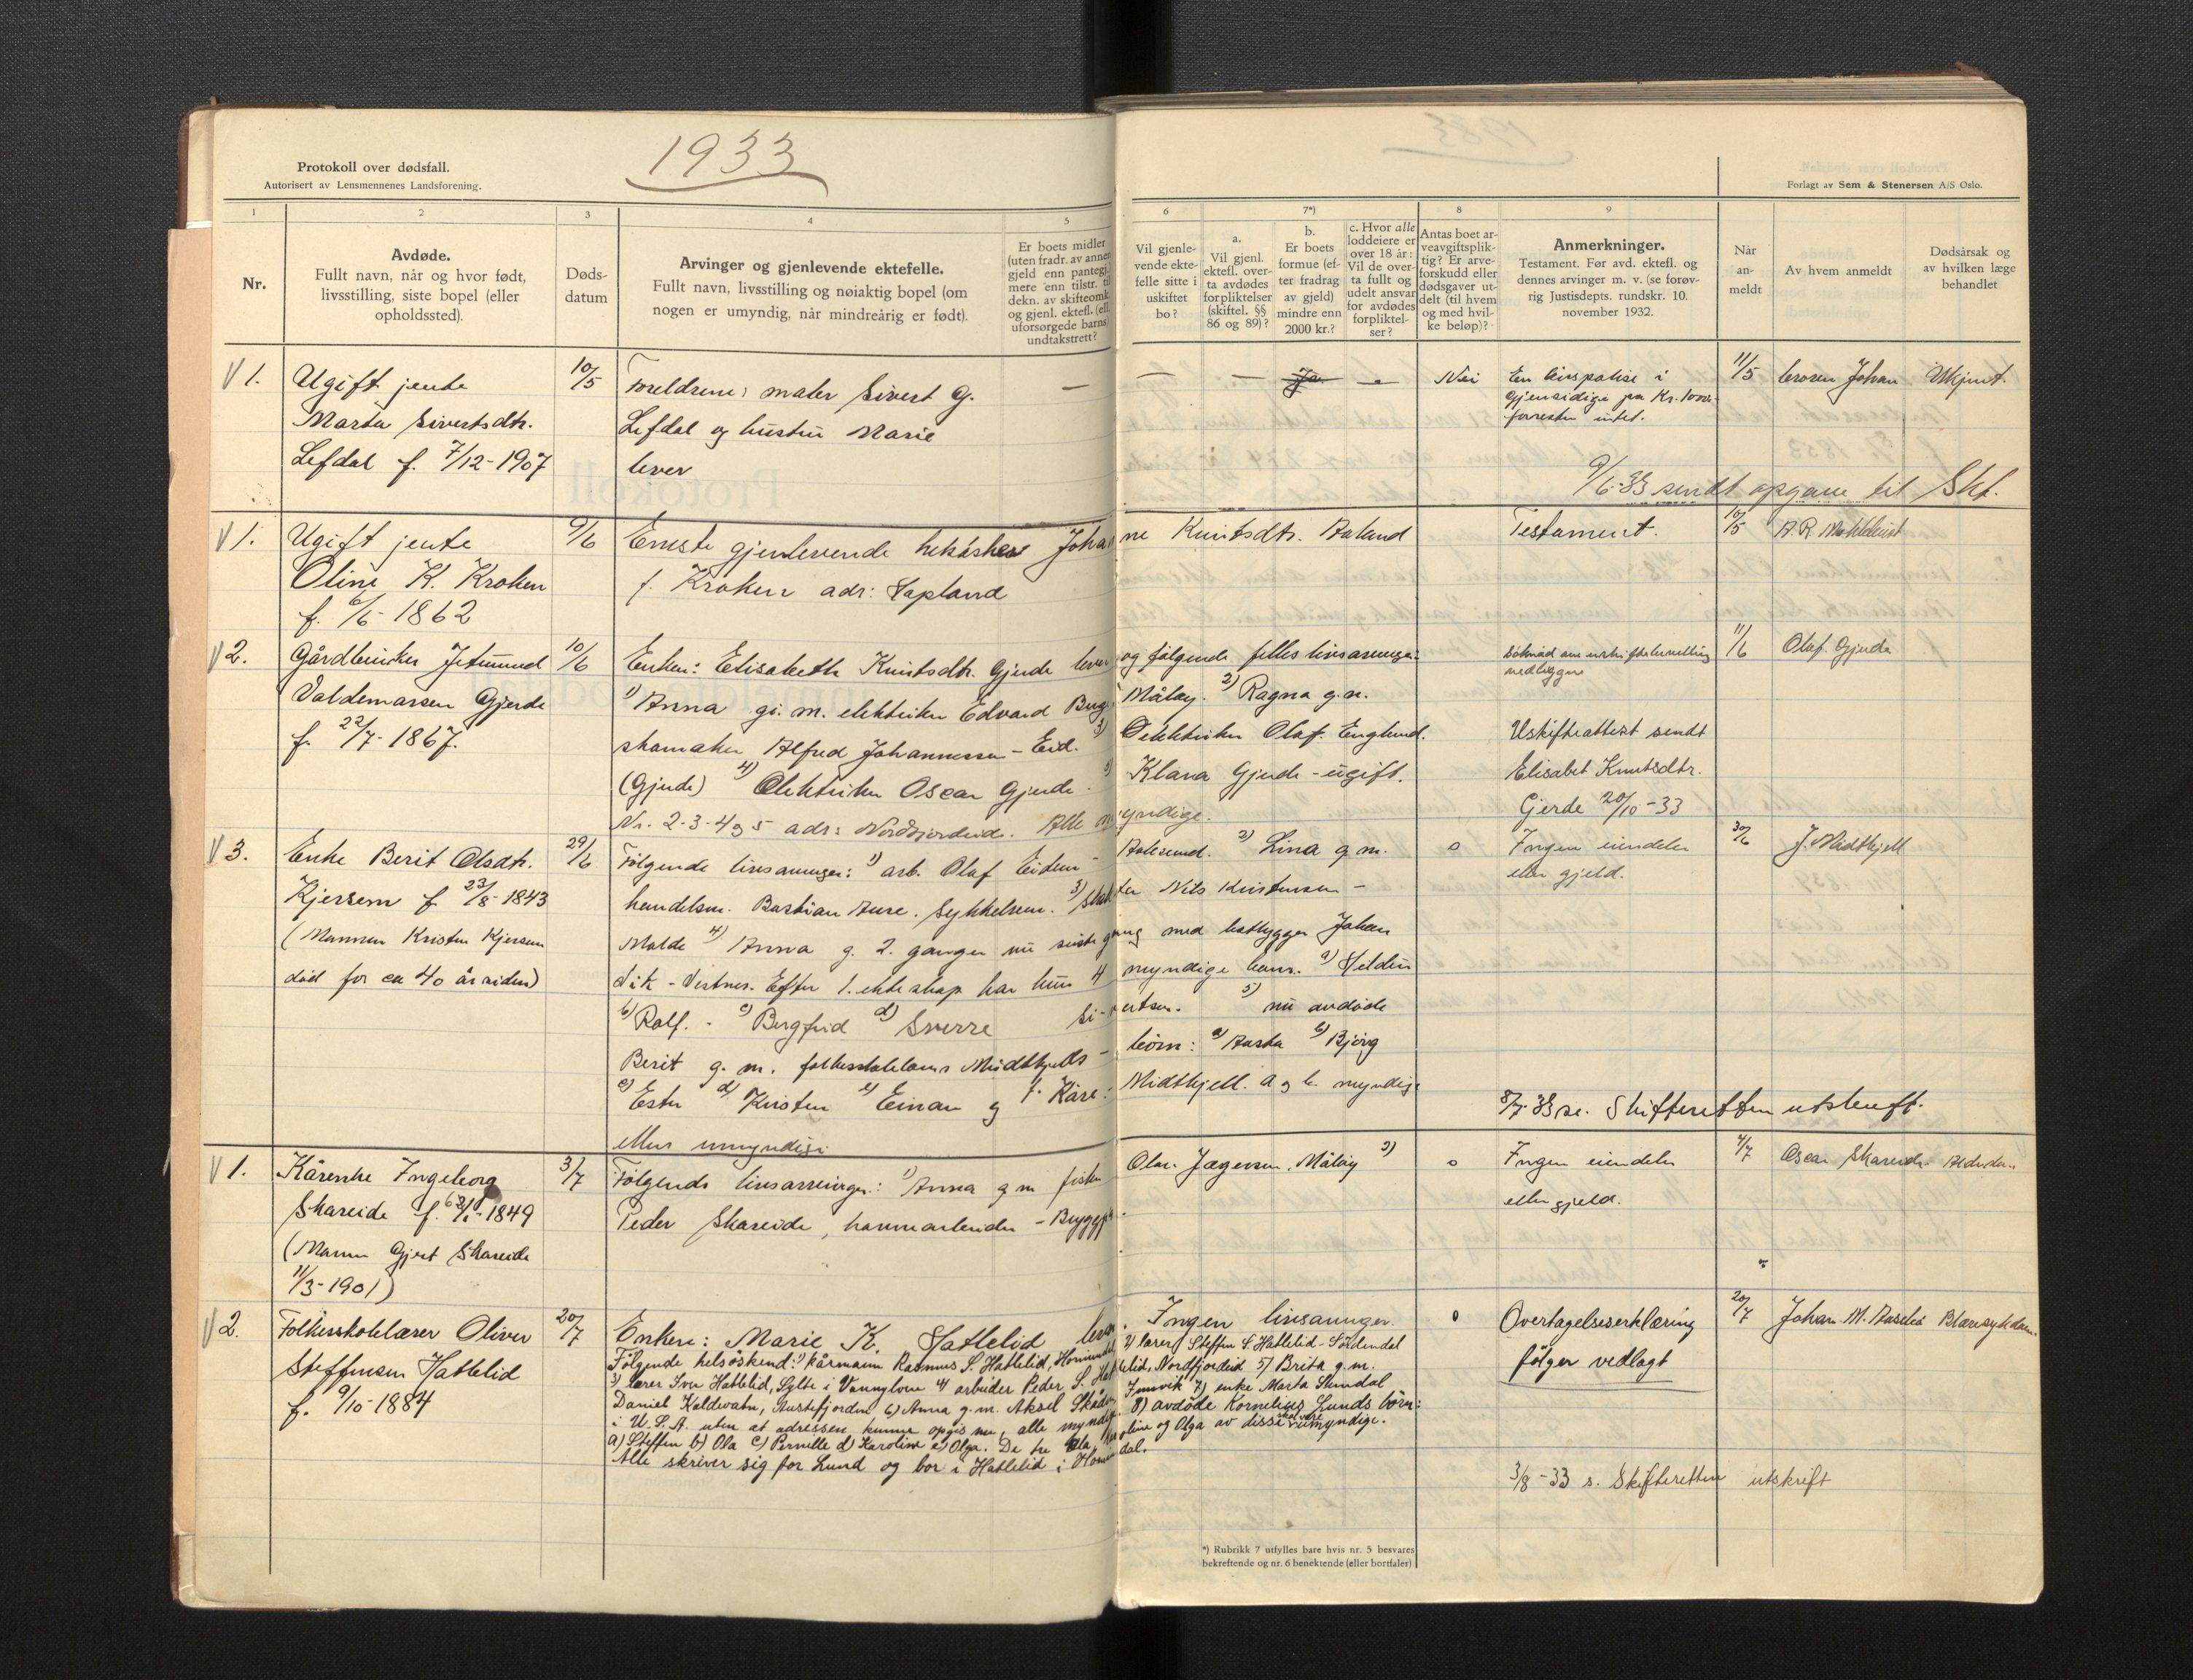 1933
Protokoll over dødsfall.
Autorisert av Lensmennenes Landsforening.
Forlagt av Sem & Stenersen A/S Oslo.
1
2
3
4
5
6
7*)
8
9
Nr.
Avdøde.
Fullt navn, når og hvor født,
livsstilling, siste bopel (eller
opholdssted).
Døds-
datum
Arvinger og gjenlevende ektefelle.
Fullt navn, livsstilling og nøiaktig bopel (om
nogen er umyndig, når mindreårig er født).
Er boets midler
(uten fradr. av annen
gjeld enn pantegj.
mere enn tilstr. til
dekn. av skifteomk.
og gjenl. ektefl. (ell.
uforsørgede barns)
undtakstrett?
Vil gjenle-
vende ekte-
felle sitte i
uskiftet
bo?
a.
Vil gjenl.
ektefl. over-
ta avdødes
forpliktelser
(skiftel. §§
86 og 89)?
b.
Er boets
formue (ef-
ter fradrag
av gjeld)
mindre enn
2000 kr.?
c. Hvor alle
loddeiere er
over 18 år:
Vil de over-
ta fullt og
udelt ansvar
for avdødes
forpliktel-
ser?
Antas boet ar-
veavgiftsplik-
tig? Er arve-
forskudd eller
dødsgaver ut-
delt (til hvem
og med hvil-
ke beløp)?
Anmerkninger.
Testament. Før avd. ektefl. og
dennes arvinger m. v. (se forøv-
rig Justisdepts. rundskr. 10.
november 1932.
Når
an-
meldt
Av hvem anmeldt
Dødsårsak og
av hvilken læge
behandlet
1.
Ugift jente
Marta Sivertsdtr.
Lefdal f. 7/12-1907
10/5
Foreldrene: maler Sivert G.
Lefdal og hustru Marie
lever
—
—
—
Ja
Nei
En livspolise i
Gjensidige pa Kr. 1000
forresten intet.
11/5
broren Johan
Ukjent.
9/6-33 sendt opgave til Skf.
1.
Ugift jente
Oline K. Kroken
f. 6/5 1862
9/6
Eneste gjenlevende helsøsken Johanne Knutsdtr. Aaland
f. Kroken adr: Hapland
Testament.
10/5
2.
Gårdbruker Jetmund
Valdemarsen Gjerde
f. 22/7-1867.
10/6
Enken: Elisabeth Knutsdtr. Gjerde lever og følgende felles livsarvinger:
1) Anna gi. m. elektriker Edvard Berge Måløy. 2) Ragna g.m.
skomaker Alfred Johannessen - Eid. 3) Elektriker Olaf Englund.
(Gjerde) 4) Elektriker Oscar Gjerde. 5) Klara Gjerde - ugift.
Nr. 2-3-4 og 5 adr: Nordfjordeid. Alle myndige.
Søknad om uskiftebevilling
vedligger
Uskifteattest sendt
Elisabet Knutsdtr.
Gjerde 20/10-33
11/6
Olaf Gjerde
3.
Enke Berit Olsdtr.
Kjersem f. 23/8-1843
(Mannen Kristen Kjersem
død for ca 40 år siden)
29/6
Følgende livsarvinger: 1) arb. Olaf Eidem - Aalesund. 2) Lina g.m.
handelsm. Bastian Aure. Sykkelven. 3) Nils Kristensen -
Molde 4) Anna g. 2. ganger nu siste gang med båtbygger Johan
Vik - Vestnes. Efter 1. ekteskap har hun 4 myndige barn. a) Heldin
b) Rolf. - c) Bergfrid d) Sverre Sivertsen. 5) nu avdøde
Berit g. m. folkeskolelærer Midtkjells - børn: a) Aasta b) Bjørg
c) Ester d) Kirsten e) Einar og f. Kåre: Midtkjell. a og b. myndige
ellers umyndige
0
Ingen eiendeler
eller gjeld.
30/6
J. Midtkjell
8/7-33 se. Skifteretten utskrift.
1.
Kårenke Ingeborg
Skareide f. 1849
(Mann Gjert Skareide
11/3-1901)
3/7
Følgende livsarvinger: 1) Anna g m fisker Olav Jægersen, Måløy 2)
Peder Skareide, havnearbeider - Bryggja
0
Ingen eiendeler
eller gjeld.
4/7
Oscar Skareide
2.
Folkeskolelærer Oliver
Steffensen Hattelid
f. 9/10-1884
20/7
Enken: Marie K. Hattelid lever. Ingen livsarvinger.
Følgende helsøskend: 1) kårmann Rasmus S. Hattelid, Hornindal 2) lærer Steffen S. Hattelid - Söldendal
3) lærer Iver Hattelid, Sylte i Vannylven 4) arbeider Peder S. Hattelid, Nordfjordeid 5) Brita g.m.
Daniel Kaldevatn, Austefjorden 6) Anna g.m. Aksel Skåden Innvik 7) enke Marta Sundal
i U.S.A. uten at adressen kunne opgis nu, alle myndige. 8) avdöde Kornelius Lunds börn:
a) Steffen b) Ola c) Pernille d) Karoline e) Olga. De tre Ola, Karoline og Olga av disse skal være umyndige.
Alle skriver sig for Lund og bor i Hattelid i Hornindal.
0
Overtagelseserklæring
følger vedlagt
20/7
Johan M. Aaselid
Blæresykdom.
3/8-33 s. Skifteretten utskrift
*) Rubrikk 7 utfylles bare hvis nr. 5 besvares
bekreftende og nr. 6 benektende (eller bortfaler)